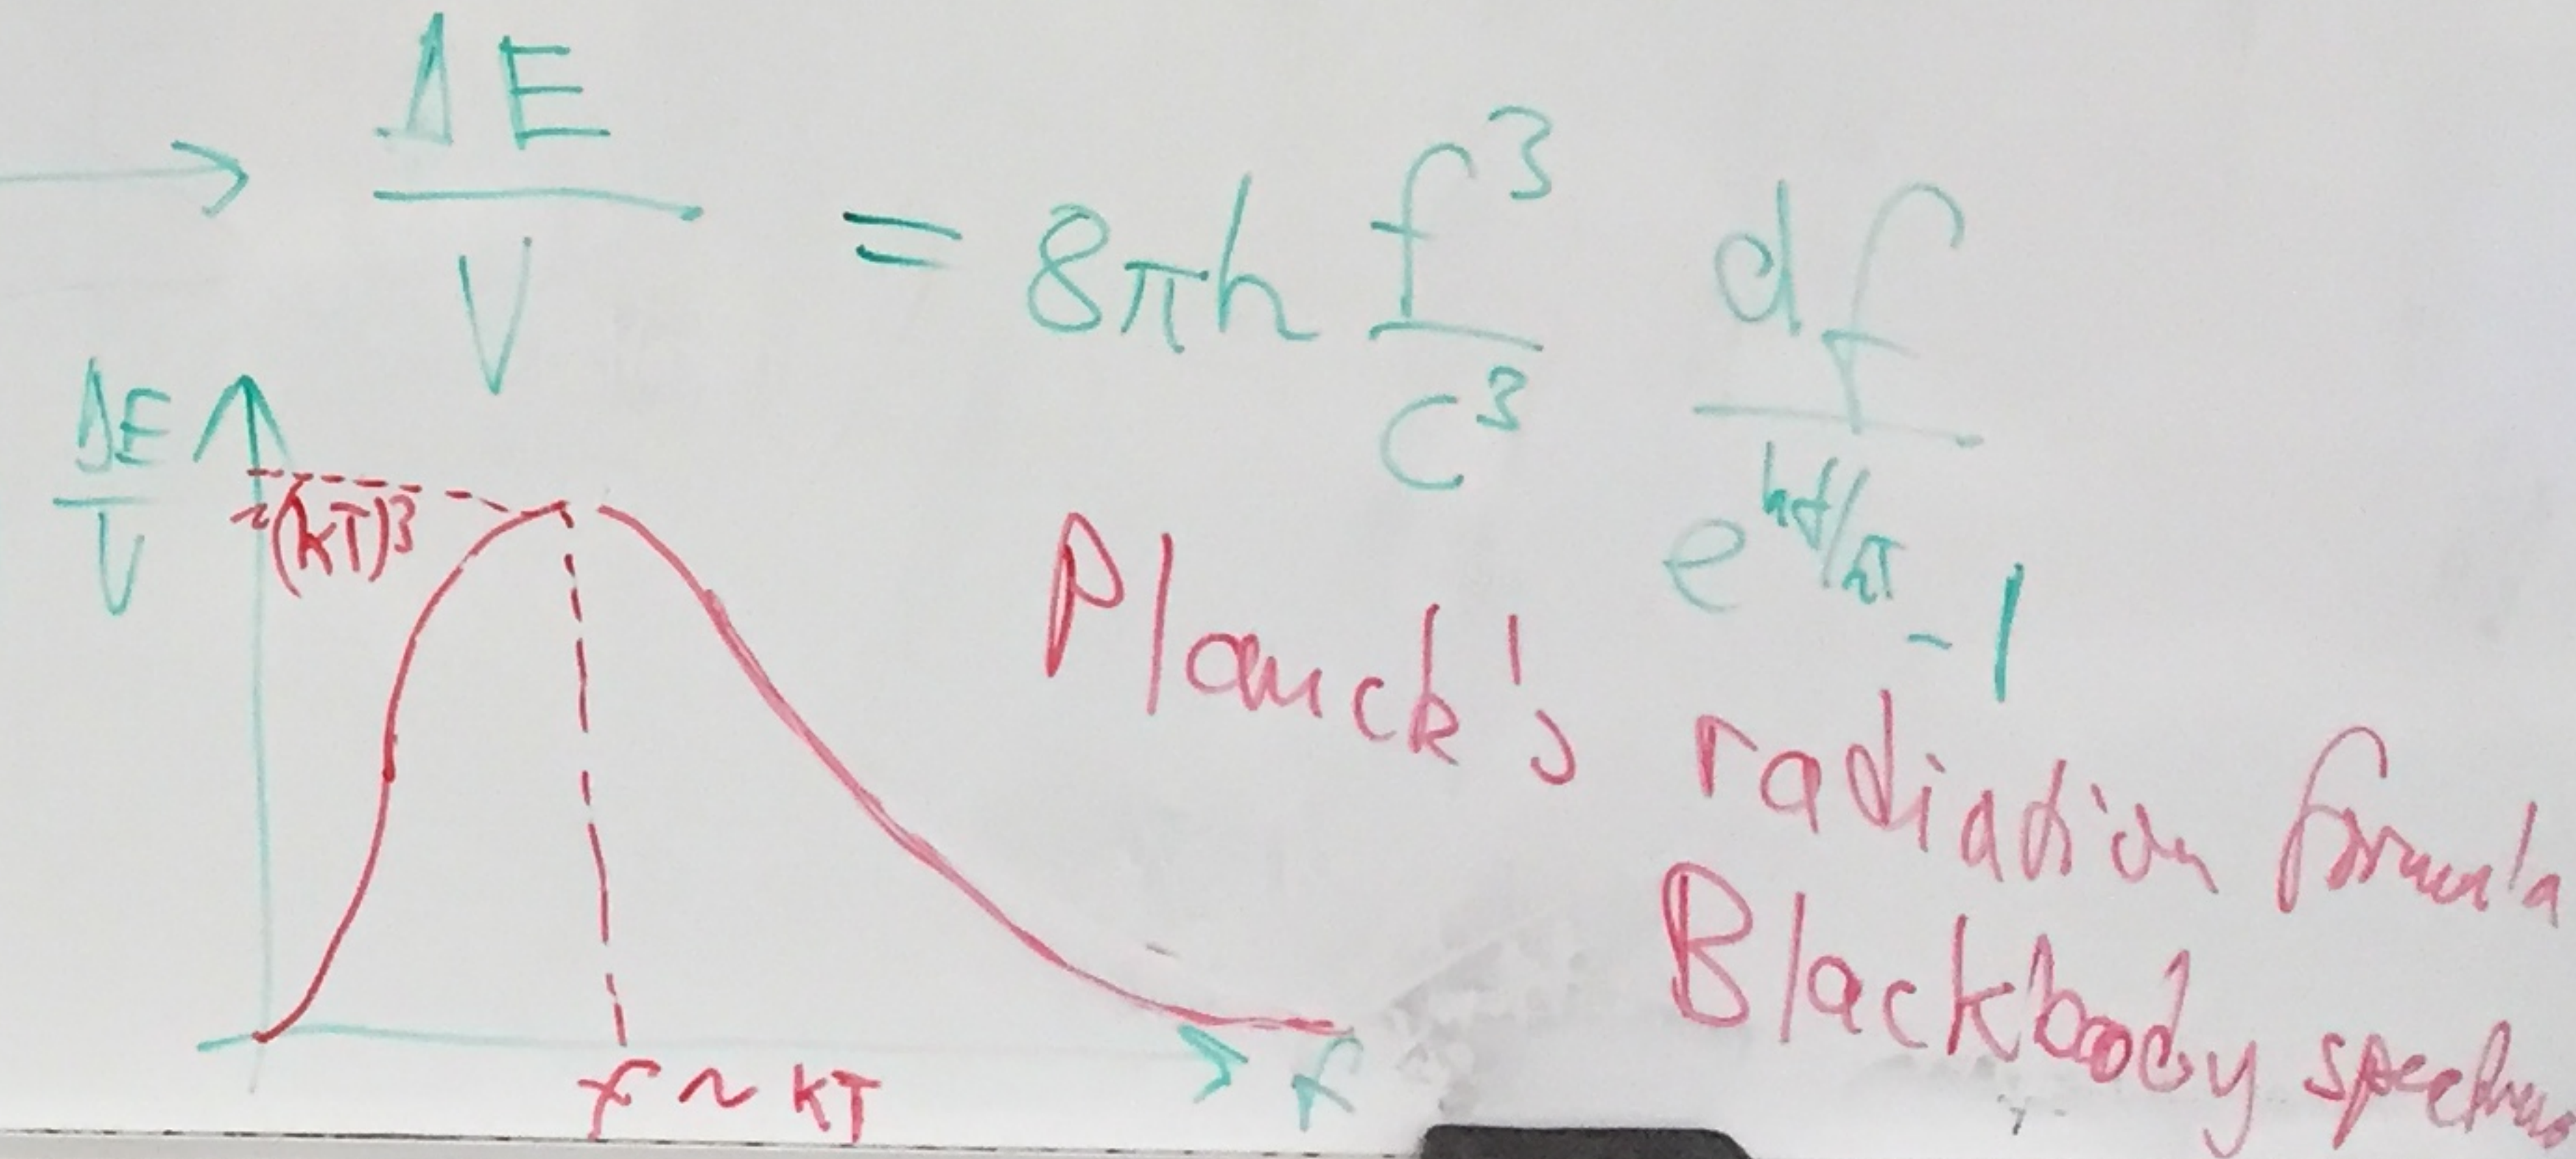 → ΔE/V = 8πh f³/c³ df/(e^hf/kT - 1)
ΔE/V
~(kT)³
f ~ kT
f
Planck's radiation formula
Blackbody spectrum